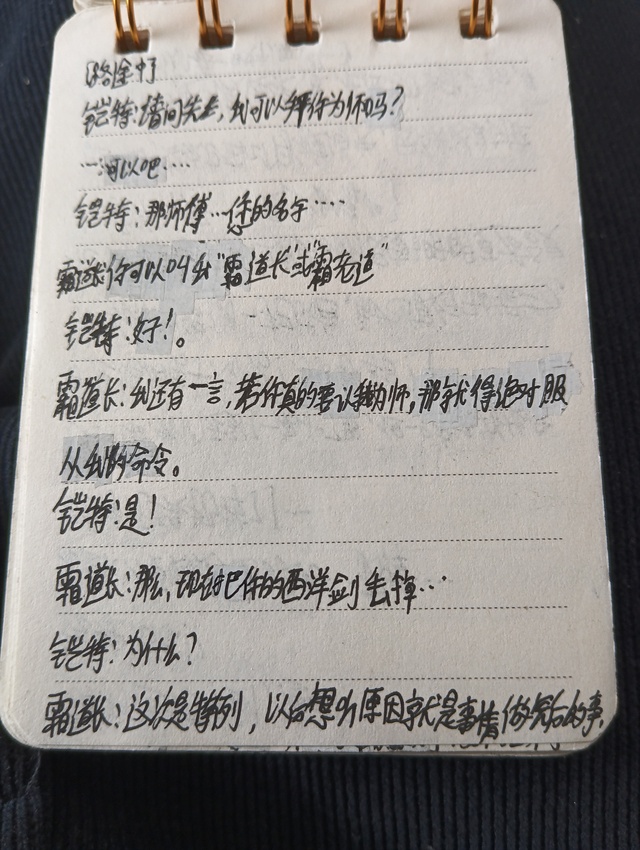 路途中
铠特:请问先生,我可以拜你为师吗?
…可以吧….
铠特:那师傅…您的名字….
霜道长:你可以叫我"霜道长"或"霜老道"
铠特:好!。
霜道长:我还有一言,若你真的要认我为师,那就得绝对服
从我的命令。
铠特:是!
霜道长:那么,现在把你的西洋剑丢掉…
铠特:为什么?
霜道长:这次是特例,以后想听原因就是事情做完后的事.